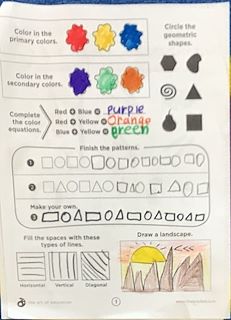 Color in the
primary colors.
Circle the
geometric
shapes.
Color in the
secondary colors.
Complete
the color
equations.
Red + Blue = purple
Red + Yellow = Orange
Blue + Yellow = green
Finish the patterns.
1
2
Make your own.
3
Fill the spaces with these
types of lines.
Draw a landscape.
Horizontal
Vertical
Diagonal
the art of education
1